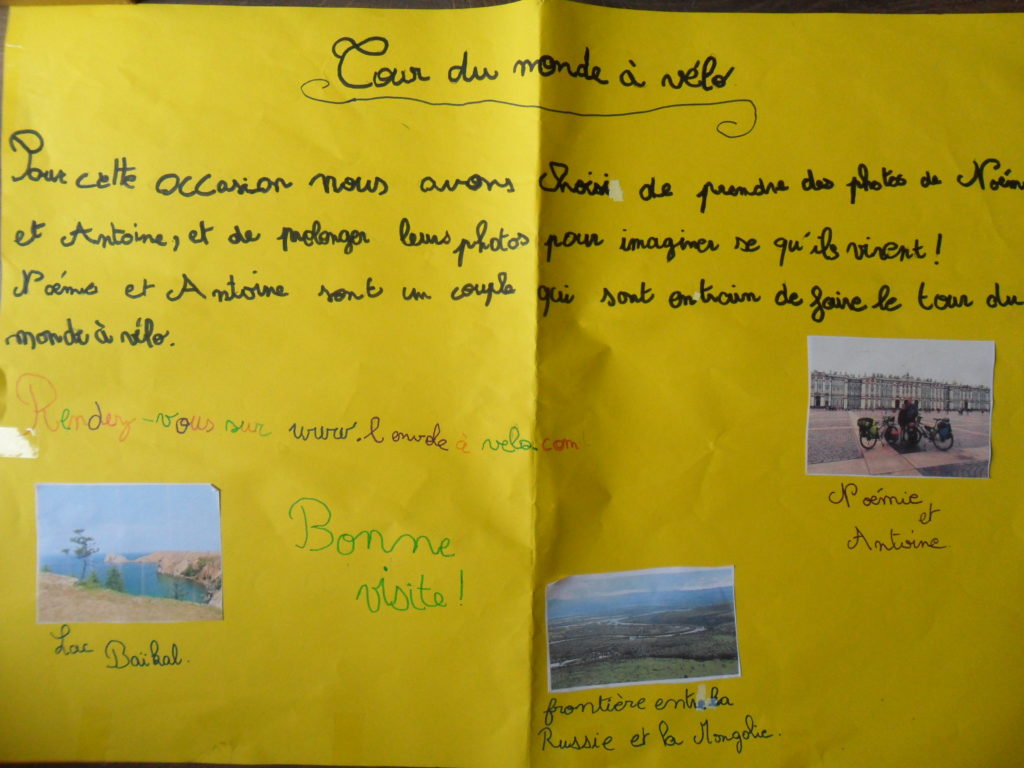 Tour du monde à vélo
Pour cette occasion nous avons choisi de prendre des photos de Noémi
et Antoine, et de prolonger leurs photos pour imaginer se qu'ils vivent !
Noémie et Antoine sont un couple qui sont entrain de faire le tour du
monde à vélo.
Rendez-vous sur www.l envde à velo.com
Bonne
visite !
Noémie
et
Antoine.
Lac Baïkal.
frontière entre la
Russie et la Mongolie.